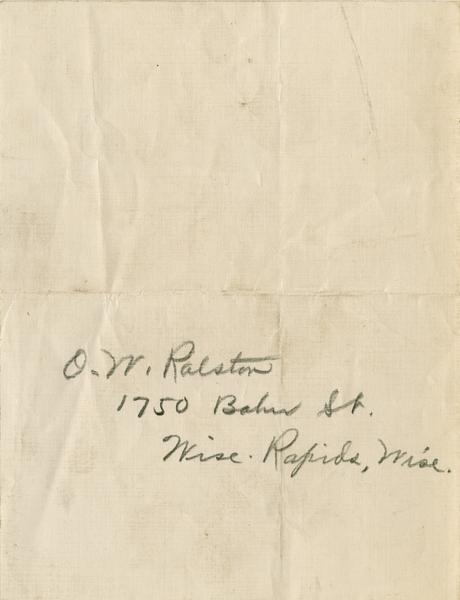 O. W. Ralston
1750 Baker St.
Wisc. Rapids, Wisc.